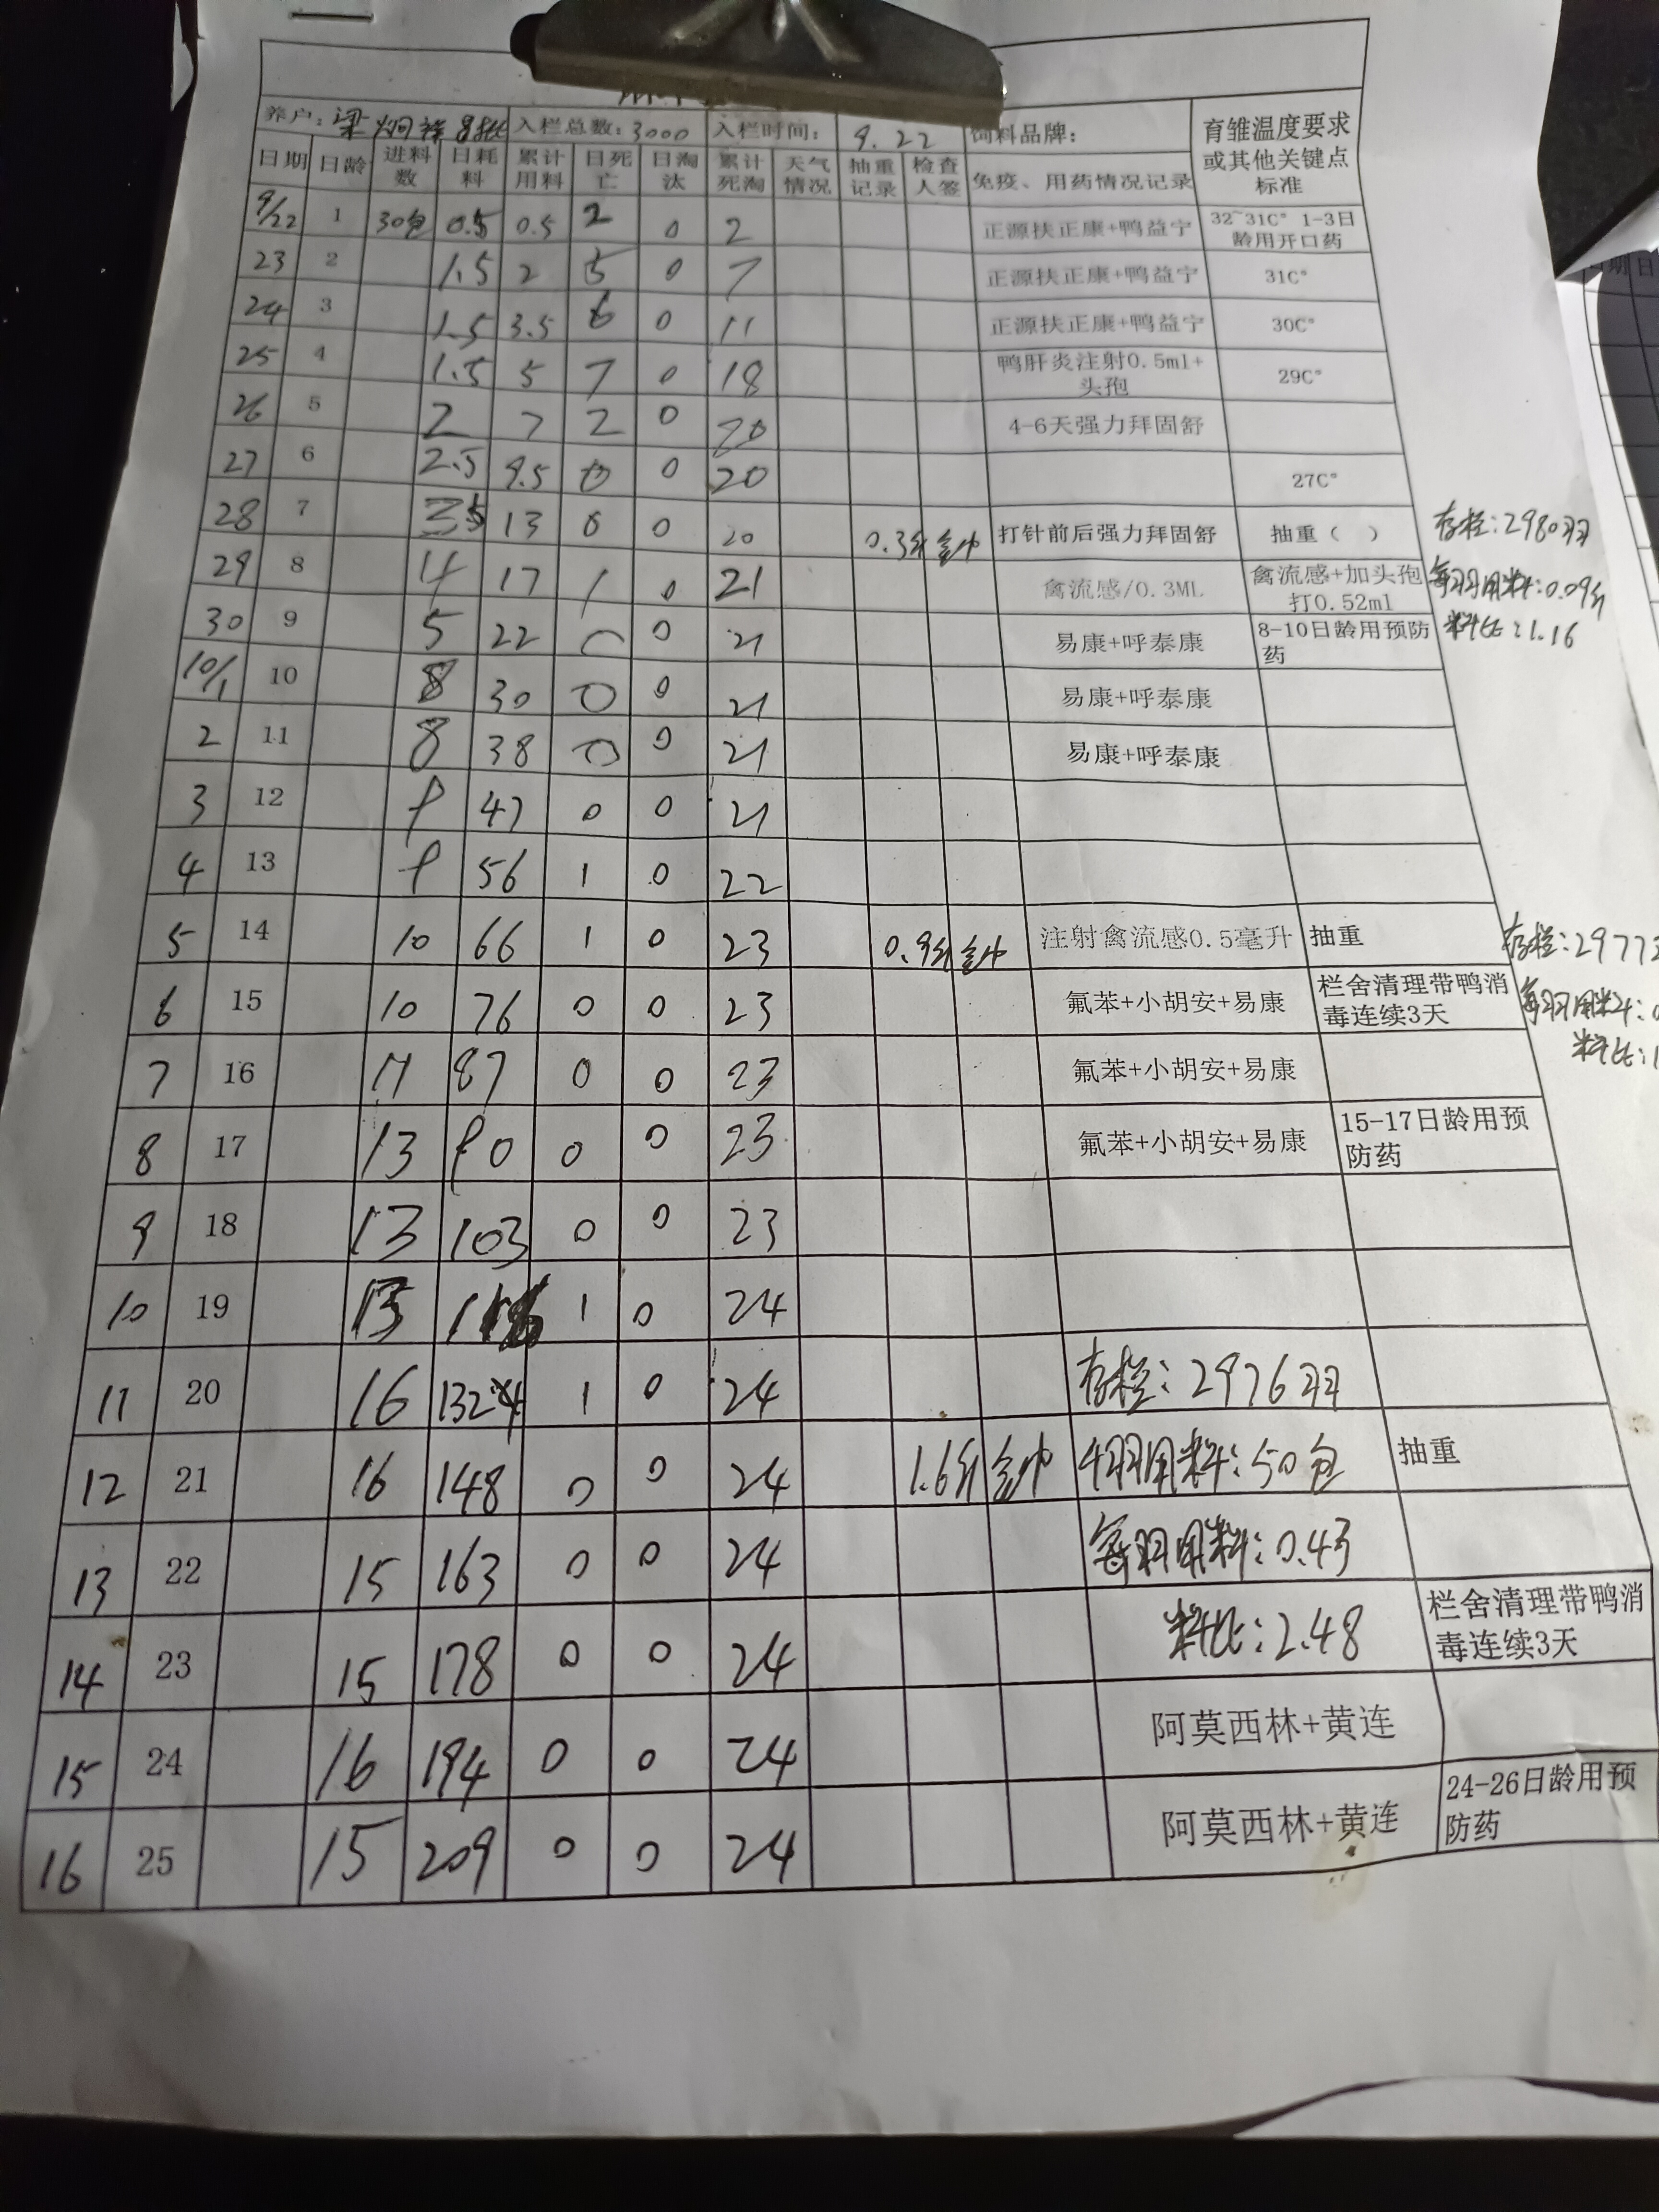 养户：梁炯祥 8批 入栏总数：3000 入栏时间： 9.22 饲料品牌： 育雏温度要求或其他关键点标准
日期 日龄 进料数 日耗料 累计用料 日死亡 日淘汰 累计死淘 天气情况 抽重记录 检查人签 免疫、用药情况记录
9/22 1 30包 0.5 0.5 2 0 2 正源扶正康+鸭益宁 32~31C° 1-3日龄用开口药
23 2 1.5 2 5 0 7 正源扶正康+鸭益宁 31C°
24 3 1.5 3.5 6 0 11 正源扶正康+鸭益宁 30C°
25 4 1.5 5 7 0 18 鸭肝炎注射0.5ml+头孢 29C°
26 5 2 7 2 0 20 4-6天强力拜固舒
27 6 2.5 9.5 0 0 20 27C°
28 7 3.5 13 0 0 20 0.3斤 打针前后强力拜固舒 抽重（ ） 存栏：2980羽
29 8 4 17 1 0 21 禽流感/0.3ML 禽流感+加头孢打0.52ml 每羽用料：0.09斤
30 9 5 22 0 0 21 易康+呼泰康 8-10日龄用预防药 料比：1.16
10/1 10 8 30 0 0 21 易康+呼泰康
2 11 8 38 0 0 21 易康+呼泰康
3 12 9 47 0 0 21
4 13 9 56 1 0 22
5 14 10 66 1 0 23 0.9斤 注射禽流感0.5毫升 抽重 存栏：2977
6 15 10 76 0 0 23 氟苯+小胡安+易康 栏舍清理带鸭消毒连续3天 每羽用料：0
7 16 11 87 0 0 23 氟苯+小胡安+易康 料比：1
8 17 13 90 0 0 23 氟苯+小胡安+易康 15-17日龄用预防药
9 18 13 103 0 0 23
10 19 13 1 0 24
11 20 16 132 1 0 24 存栏：2976羽
12 21 16 148 0 0 24 1.6斤 用料：50包 抽重
13 22 15 163 0 0 24 每羽用料：0.43
14 23 15 178 0 0 24 料比：2.48 栏舍清理带鸭消毒连续3天
15 24 16 194 0 0 24 阿莫西林+黄连
16 25 15 209 0 0 24 阿莫西林+黄连 24-26日龄用预防药